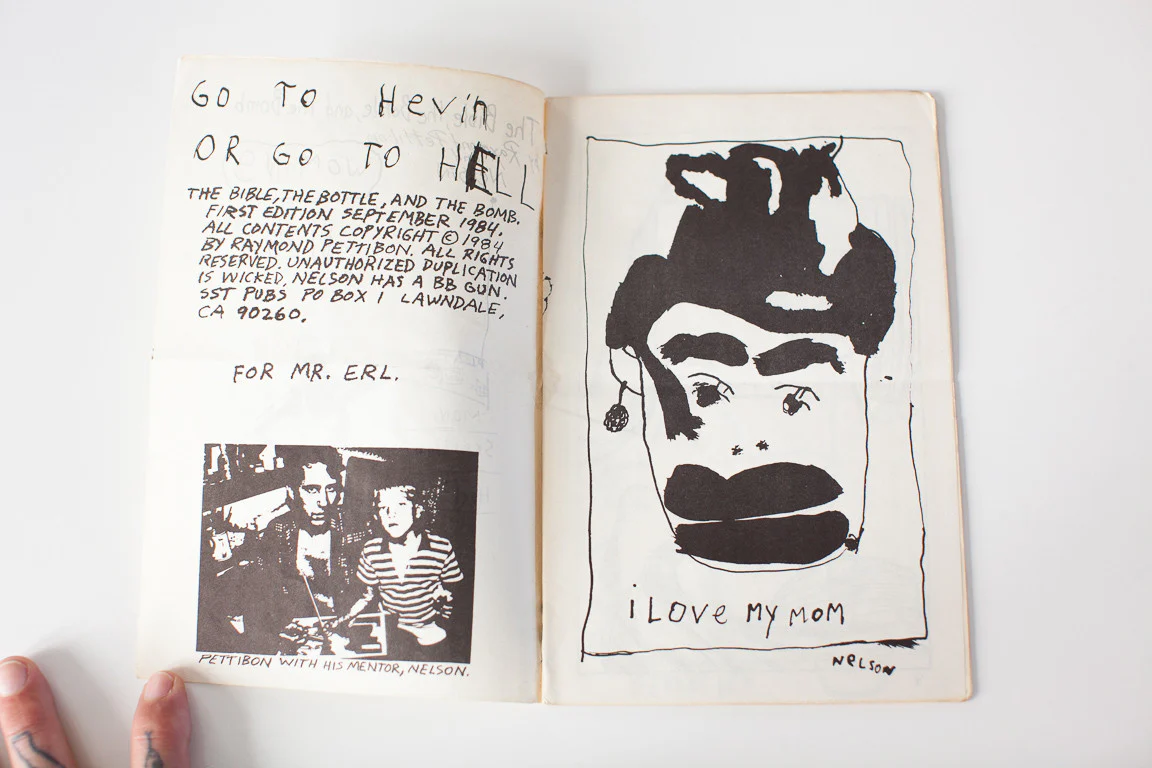 GO TO Hevin
OR GO TO HELL
THE BIBLE, THE BOTTLE, AND THE BOMB.
FIRST EDITION SEPTEMBER 1984.
ALL CONTENTS COPYRIGHT © 1984
BY RAYMOND PETTIBON. ALL RIGHTS
RESERVED. UNAUTHORIZED DUPLICATION
IS WICKED, NELSON HAS A BB GUN.
SST PUBS PO BOX 1 LAWNDALE,
CA 90260.
FOR MR. ERL.
PETTIBON WITH HIS MENTOR, NELSON.
i LOVe MY MOM
NELSON